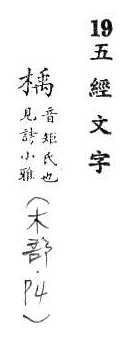 19五經文字
楀音矩氏也
見詩小雅
(木部.P4)